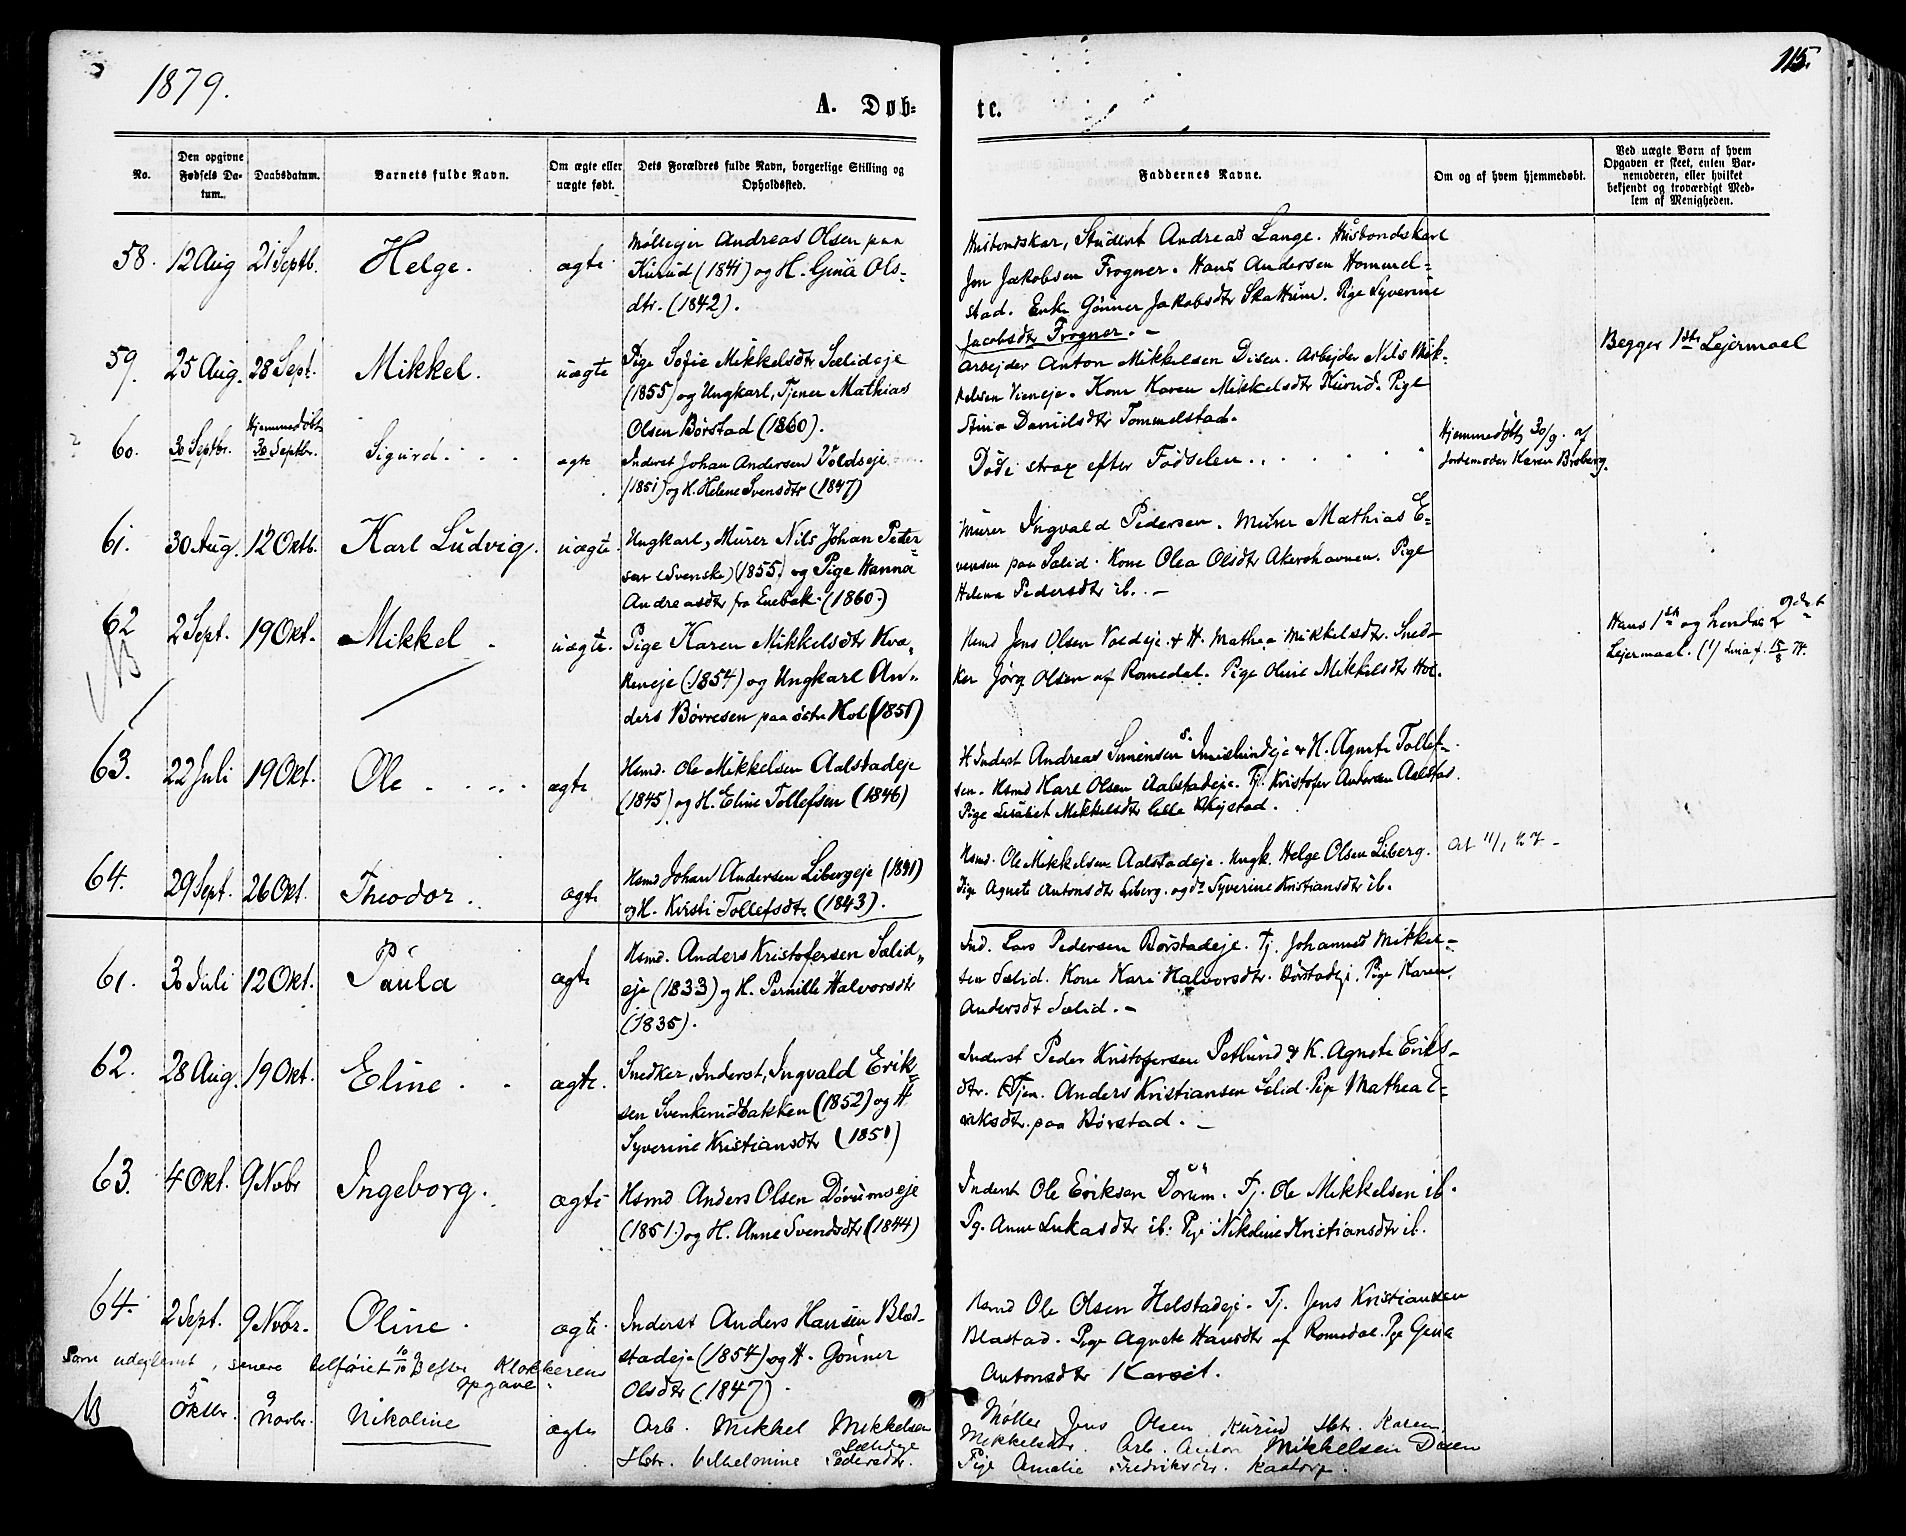 1879.
115.
A. Døb=
te.
No.
Den opgivne Fødsels Da-tum.
Daabsdatum.
Barnets fulde Navn.
Om ægte eller uægte født.
Dets Forældres fulde Navn, borgerlige Stilling og Opholdssted.
Faddernes Navne.
Om og af hvem hjemmedøbt.
Ved uægte Børn af hvem Opgaven er skeet, enten Bar-nemoderen, eller hvilket bekjendt og troværdigt Med-lem af Menigheden.
58. 12 Aug 21 Septb. Helge. ægte
Mølleejer Andreas Olsen paa
Kurud (1841) og H. Gina Ols-
dtr. (1842).
Husbondskar, Student Andreas Lange. Husbondskarl
Jon Jakobsen Frogner. Hans Andersen Hommel=
stad. Enke Gunner Jakobsdtr Skattum. Pige Syverine
Jacobsdtr Frogner. -
59. 25 Aug. 28 Sept. Mikkel. uægte
Pige Sofie Mikkelsdtr Sælideje
(1855) og Ungkarl, Tjener Mathias
Olsen Børstad (1860).
Arbejder Anton Mikkelsen Disen. Arbejder Nils Mik-
kelsen Vieneje. Kone Karen Mikkelsdtr Kurud. Pige
Stina Danielsdtr Tommelstad.
Begges 1ste Lejermaal
60. 30 Septbr. Hjemmedøbt 30 Septbr. Sigurd. ægte
Inderst Johan Andersen Voldseje
(1851) og H. Helene Svensdtr (1847)
Døde strax efter Fødselen.
Hjemmedøbt 30/9. af
Jordemoder Karen Broberg.
61. 30 Aug. 12 Oktb. Karl Ludvig. uægte.
Ungkarl, Murer Nils Johan Peder=
sen (Svenske) (1855) og Pige Hanna
Andreasdtr fra Enebak. (1860.)
Murer Ingvald Pedersen. Murer Mathias E-
vensen paa Sælid. Kone Olea Olsdtr Akershavnen. Pige
Helena Pedersdtr ib. -
62 2 Sept. 19 Okt. Mikkel uægte.
NB
Pige Karen Mikkelsdtr Kva-
keneje (1854) og Ungkarl An-
ders Børresen paa østre Hol (1851)
Hsmd Jens Olsen Voldeje & H. Mathea Mikkelsdtr. Sned-
ker Jørg. Olsen af Romedal. Pige Oline Mikkelsdtr Hol.
Hans 1ste og hendes 2
Lejermaal.
63. 22 Juli 19 Okt. Ole ægte
Hsmd. Ole Mikkelsen Aalstadeje
(1845) og H. Eline Tollefsen (1846)
H Inderst Andreas Simensen Imislundeje & H. Agnete Tollef-
sen. Hsmd Karl Olsen Aalstadeje. Tj. Kristofer Andersen Aalstad.
Pige Lisabet Mikkelsdtr lille
64. 29 Sept. 26 Okt. Theodor. ægte
Hsmd Johan Andersen Libergeje (1841)
og H. Kirsti Tollefsdtr (1843).
Hsmd. Ole Mikkelsen Aalstadeje. Ungk. Helge Olsen Liberg.
Pige Agnete Antonsdtr Liberg. og do Syverine Kristiansdtr ib.
61. 30 Juli 12 Okt. Paula ægte
Hsmd. Anders Kristofersen Sælid-
eje (1833) og H. Pernille Halvorsdtr
(1835).
Ind. Lars Pedersen Børstadeje. Tj. Johannes Mikkel-
sen Sælid. Kone Kari Halvorsdtr. Børstadeje. Pige Karen
Andersdt Sælid. -
62. 28 Aug. 19 Okt. Eline ægte.
Snedker, Inderst, Ingvald Erik=
sen Svenkerudbakken (1852) og H
Syverine Kristiansdtr (1851)
Inderst Peder Kristofersen Petlund & K. Agnete Eriks-
dtr. Tjen. Anders Kristiansen Sælid. Pige Mathea E-
riksdtr. paa Børstad. -
63. 4 Okt. 9 Novbr Ingeborg. ægte
Hsmd Anders Olsen Dørumseje
(1851.) og H. Anne Svendsdtr (1844)
Inderst Ole Eriksen Dørum. Tj. Ole Mikkelsen ib.
Pg. Anne Lukasdtr ib. Pige Nikoline Kristiansdtr ib.
64. 2 Sept. 9 Novbr. Oline ægte
Inderst Anders Hansen Blæd-
stadeje (1854) og H. Gunner
Olsdtr (1847).
Hsmd Ole Olsen Helstadeje. Tj. Jens Kristiansen
Blæstad. Pige Agnete Hansdtr af Romedal. Pge Gina
Antonsdtr Karset.
Som udeglemt, senere tilføiet 10/10 efter Klokkerens
Opgave.
NB 5 Oktbr. 9 Novbr. Nikoline ægte
Arb. Mikkel Mikkelsen
Sælideje
Hstr. Vilhelmine Pedersdtr.
Møller Jens Olsen Kurud Hstr. Karen
Mikkelsdtr. Arb. Anton Mikkelsen Disen
Pige Amalie Fredriksdtr. Kaatorp.